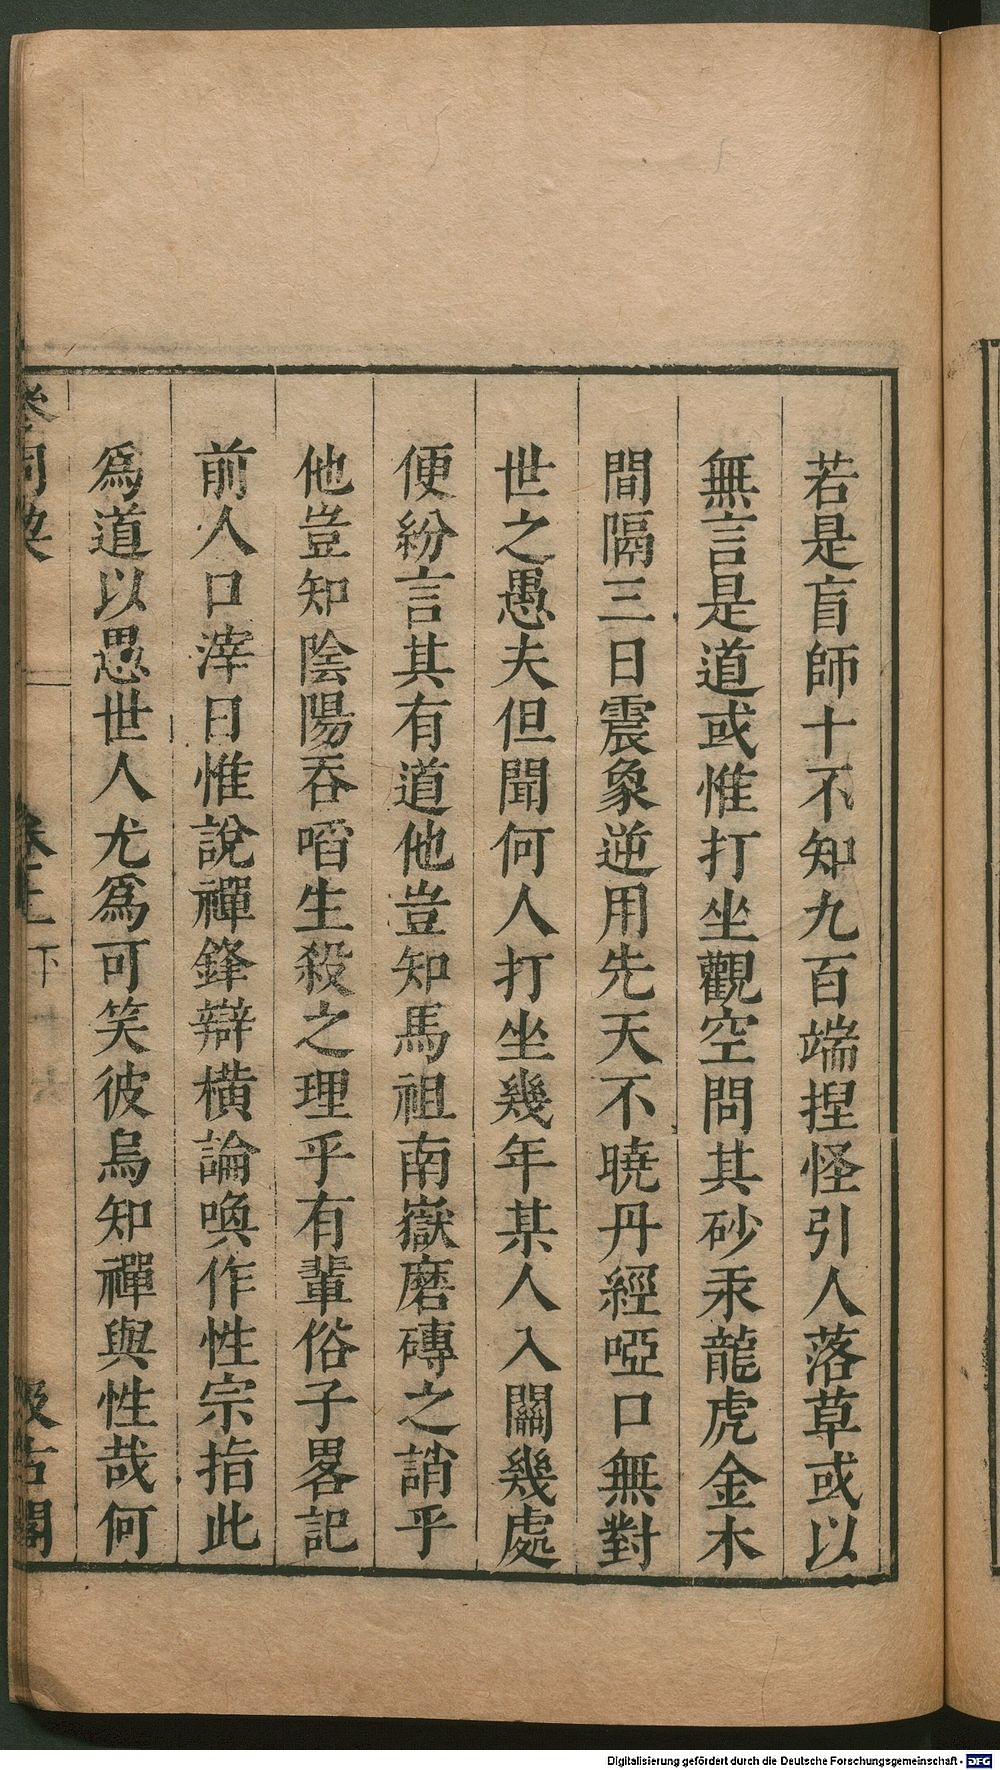 若是盲師十不知九百端揑怪引人落草或以
無言是道或惟打坐觀空問其砂汞龍虎金木
間隔三日震象逆用先天不曉丹經啞口無對
世之愚夫但聞何人打坐幾年某人入關幾處
便紛言其有道他豈知馬祖南嶽磨磚之誚乎
他豈知陰陽吞啗生殺之理乎有輩俗子畧記
前人口滓日惟說禪鋒辯橫論喚作性宗指此
爲道以愚世人尤爲可笑彼烏知禪與性哉何
參同契 卷上 下 十六 汲古閣
Digitalisierung gefördert durch die Deutsche Forschungsgemeinschaft - DFG